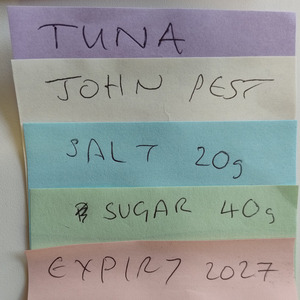 TUNA
JOHN PEST
SALT 20g
SUGAR 40g
EXPIRY 2027